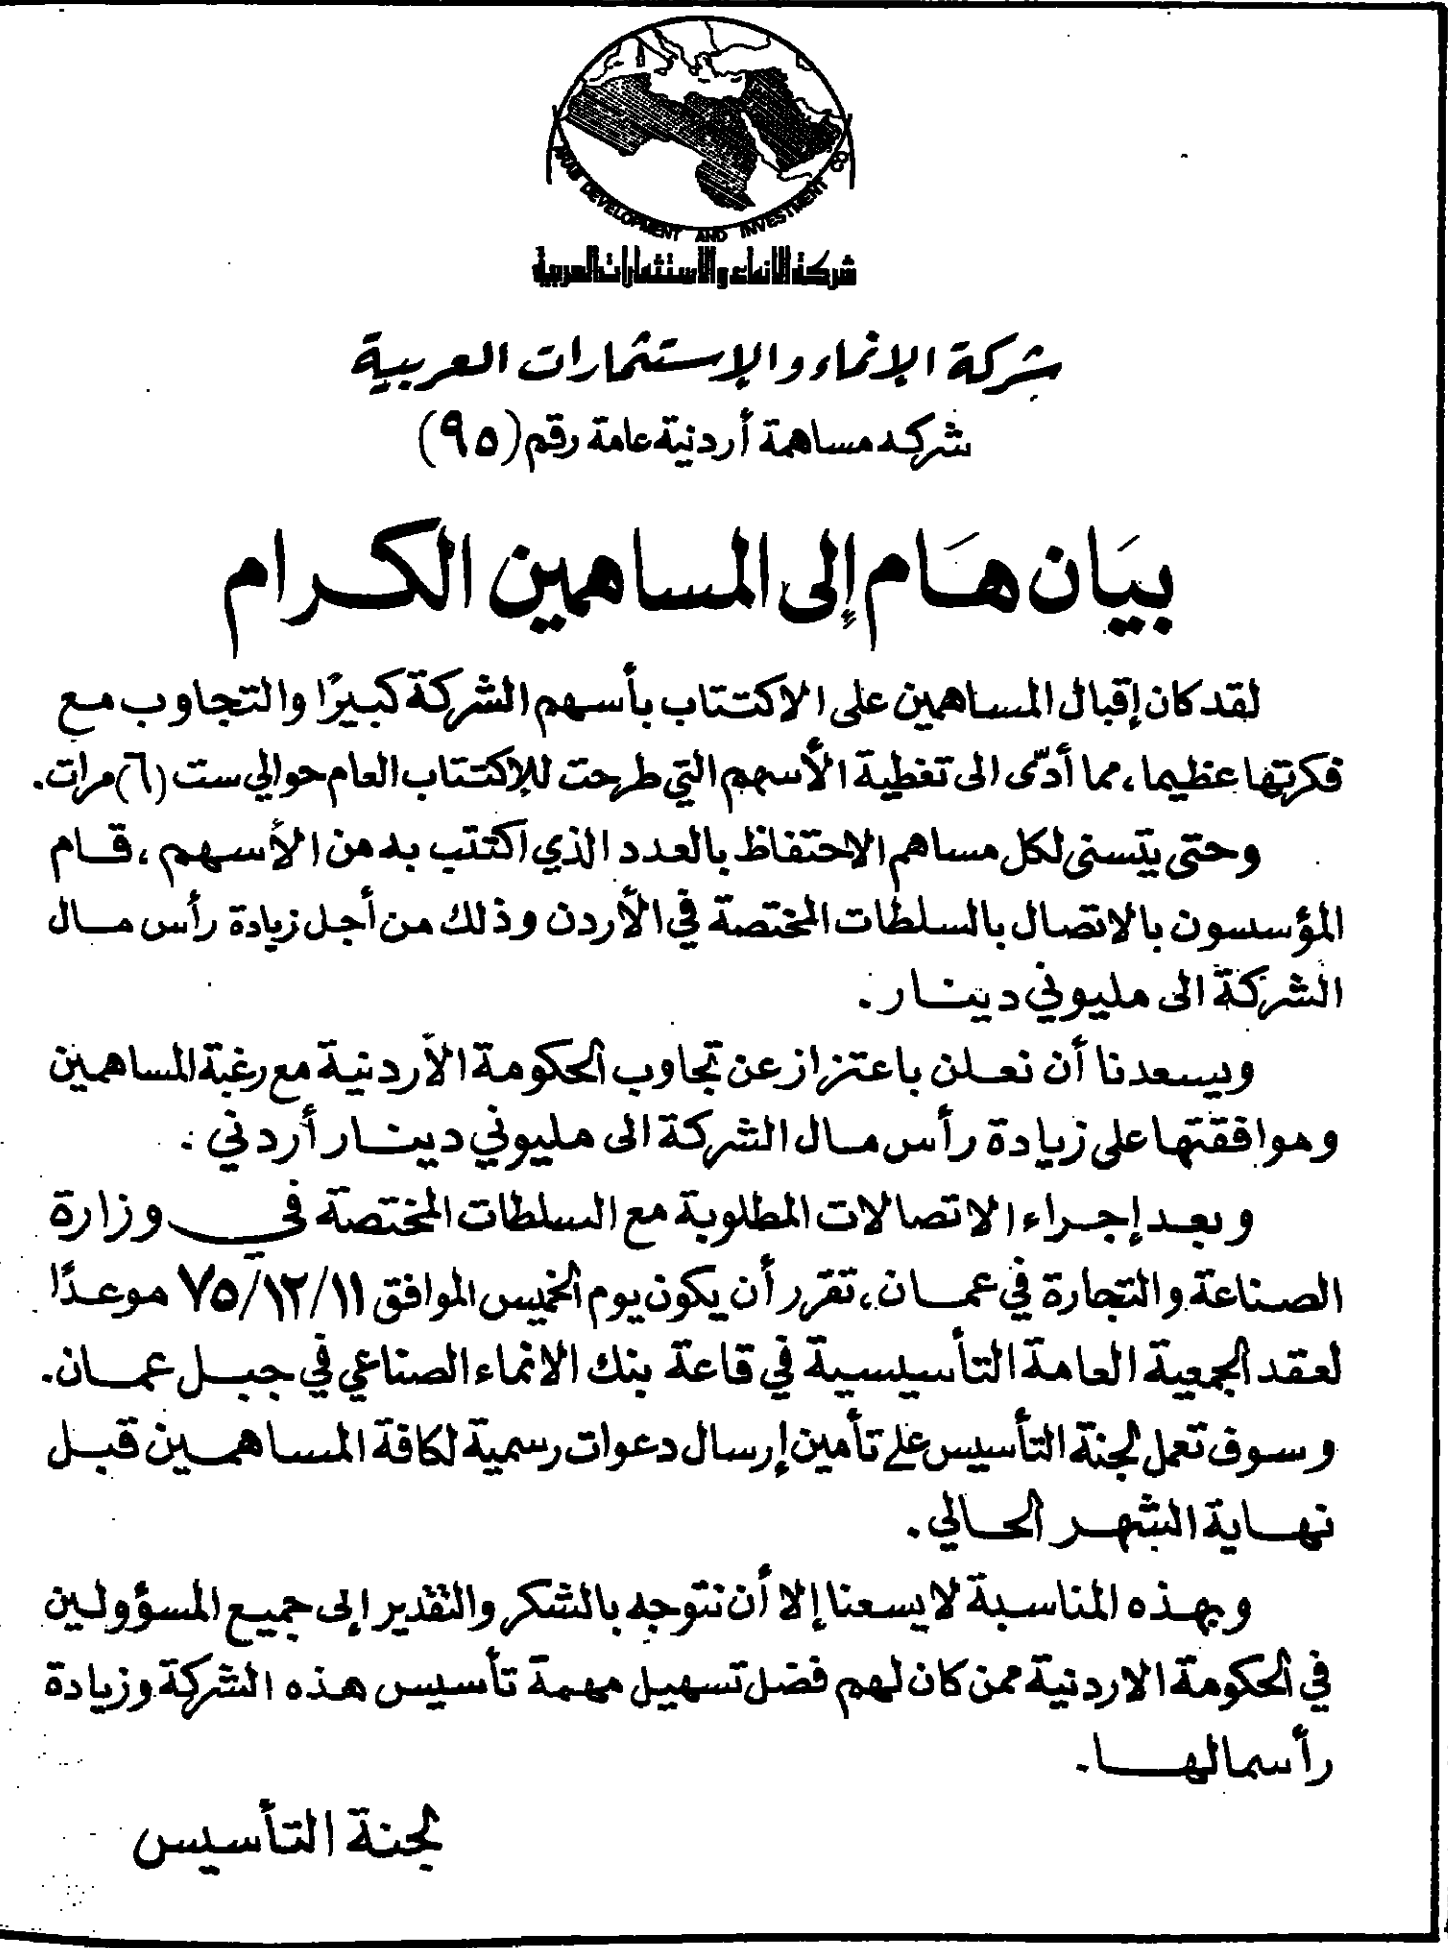 ARAB DEVELOPMENT AND INVESTMENT CO.
شركة الانماء والاستثمارات العربية
شركة الإنماء والإستثمارات العربية
شركه مساهمة أردنية عامة رقم (٩٥)
بيَان هَام إلى المساهمين الكرام
لقد كان إقبال المساهمين على الاكتتاب بأسهم الشركة كبيرًا والتجاوب مع
فكرتها عظيما، مما أدّى الى تغطية الأسهم التي طرحت للإكتتاب العام حوالي ست (٦) مرات.
وحتى يتسنى لكل مساهم الاحتفاظ بالعدد الذي اكتتب به من الأسهم، قام
المؤسسون بالاتصال بالسلطات المختصة في الأردن وذلك من أجل زيادة رأس مال
الشركة الى مليوني دينار.
ويسعدنا أن نعلن باعتزاز عن تجاوب الحكومة الأردنية مع رغبة المساهمين
وموافقتها على زيادة رأس مال الشركة الى مليوني دينار أردني.
وبعد إجراء الاتصالات المطلوبة مع السلطات المختصة في وزارة
الصناعة والتجارة في عمان، تقرر أن يكون يوم الخميس الموافق ٧٥/١٢/١١ موعدًا
لعقد الجمعية العامة التأسيسية في قاعة بنك الانماء الصناعي في جبل عمان.
وسوف تعمل لجنة التأسيس على تأمين إرسال دعوات رسمية لكافة المساهمين قبل
نهاية الشهر الحالي.
وبهذه المناسبة لا يسعنا إلا أن نتوجه بالشكر والتقدير إلى جميع المسؤولين
في الحكومة الاردنية ممن كان لهم فضل تسهيل مهمة تأسيس هذه الشركة وزيادة
رأسمالها.
لجنة التأسيس